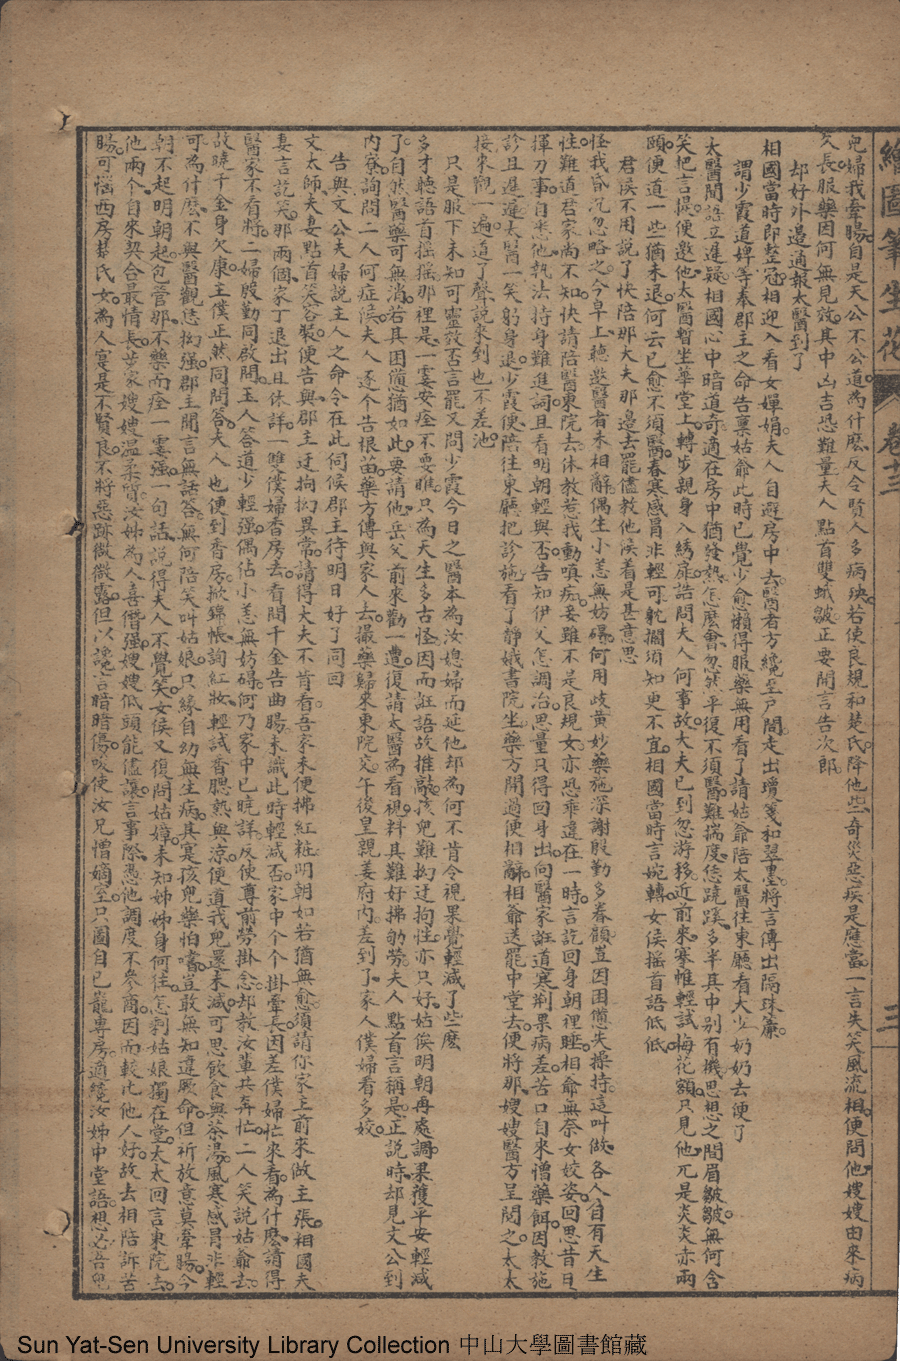 繪圖筆生花 卷十三 三
兒婦我牽腸自是天公不公道為什麽反令賢人多病殃若使良規和楚氏降他些奇災惡疾是應當一言失笑風流相便問他嫂嫂由來病
久長服藥因何無見效其中凶吉恐難量夫人點首雙蛾皺正要開言告次郎
却好外邊通報太醫到了
相國當時即整冠相迎入看女嬋娟夫人自避房中去醫者方纔至戸間走出瓊箋和翠墨將言傳出隔珠簾
謂少霞道婢等奉郡主之命告稟姑爺此時已覺少愈懶得服藥無用看了請姑爺陪太醫往東廳看大少奶奶去便了
太醫聞語立遲疑相國心中暗道奇適在房中猶發熱怎麽會忽然平復不須醫難揣度恁蹺蹊多半其中别有機思想之間眉皺皺無何含
笑把言提便邀他太醫暫坐華堂上轉步親身入綉扉詰問夫人何事故大夫已到忽游移近前來搴帷輕試梅花額只見他兀是炎炎赤兩
頤便道一些猶未退何云已愈不須醫春寒感冒非輕可躭擱須知更不宜相國當時言婉轉女侯摇首語低低
君侯不用説了快陪那大夫那邊去罷儘教他候着是甚意思
怪我昏沉忽略之今早上聽邀醫者未相辭偶生小恙無妨碍何用歧黄妙藥施深謝殷勤多眷顧豈因困憊失操持這叫做各人自有天生
性難道君家尚不知快請陪醫東院去休教惹我動嗔痴妾雖不是良規女亦恐乖違在一時言訖回身朝裡睡相爺無奈女姣姿回思昔日
揮刀事自恃他執法持身難進詞且看明朝輕與否告知伊父怎調治思量只得回身出向醫家誑道寒荆果病差苦口自來憎藥餌因教施
診且遲遲太醫一笑躬身退少霞便陪往東廳把診施看了靜娥書院坐藥方開過便相辭相爺送罷中堂去便將那嫂嫂醫方呈閲之太太
接來觀一遍道了聲説來到也不差池
只是服下未知可靈效否言罷又問少霞今日之醫本為汝媳婦而延他却為何不肯令視果覺輕減了些麽
多才聽語首摇摇那裡是一霎安痊不要瞧只為天生多古怪因而誑語故推敲孩兒難拗迂拘性亦只好姑俟明朝再處調果獲平安輕減
了自然醫藥可無消若其困憊猶如此要請他岳父前來勸一遭復請太醫為看視料其難好拂劬勞夫人點首言稱是正説時却見文公到
内寮詢問二人何症候夫人逐个告根苗藥方傳與家人去撮藥歸來東院交午後皇親姜府内差到了家人僕婦看多姣
告與文公夫婦説主人之命令在此伺候郡主待明日好了同回
文太師夫妻點首笑容裝便告與郡主迂拘拗異常請得大夫不肯看吾家未便拂紅粧明朝如若猶無愈須請你家主前來做主張相國夫
妻言訖笑那兩個家丁退出且休詳一雙僕婦香房去看問千金告曲腸未識此時輕減否家中个个掛牽長因差僕婦忙來看為什麽請得
醫家不看將二婦殷勤同啟問主人答道少輕强偶佔小恙無妨碍何乃家中已曉詳反使尊前勞掛念却教汝輩共奔忙二人笑説姑爺去
故曉千金身欠康主僕正然同問答夫人也便到香房掀錦帳詢紅妝輕試香腮熱與凉便道我兒還未減可思飲食與茶湯風寒感冒非輕
可為什麽不與醫觀恁拗强郡主聞言無話答無何陪笑叫姑娘只緣自幼無生病其寔孩兒藥怕嚐豈敢無知違厥命但祈放意莫牽腸今
朝不起明朝起包管那不藥而痊一霎强一句話説得夫人不覺笑女侯又復問姑嫜未知姊姊身何住怎剩姑娘獨在堂太太回言東院去
他兩个自來契合最情長芳家嫂嫂温柔質汝姊為人喜僭强嫂嫂低頭能儘讓言事際憑他調度不參商因而較比他人好故去相陪訴苦
腸可惱西房慕氏女為人寔是不賢良不將惡跡微微露但以讒言暗暗傷唆使汝兄憎嫡室只圖自已寵專房適纔汝姊中堂語想必吾兒
Sun Yat-Sen University Library Collection 中山大學圖書館藏